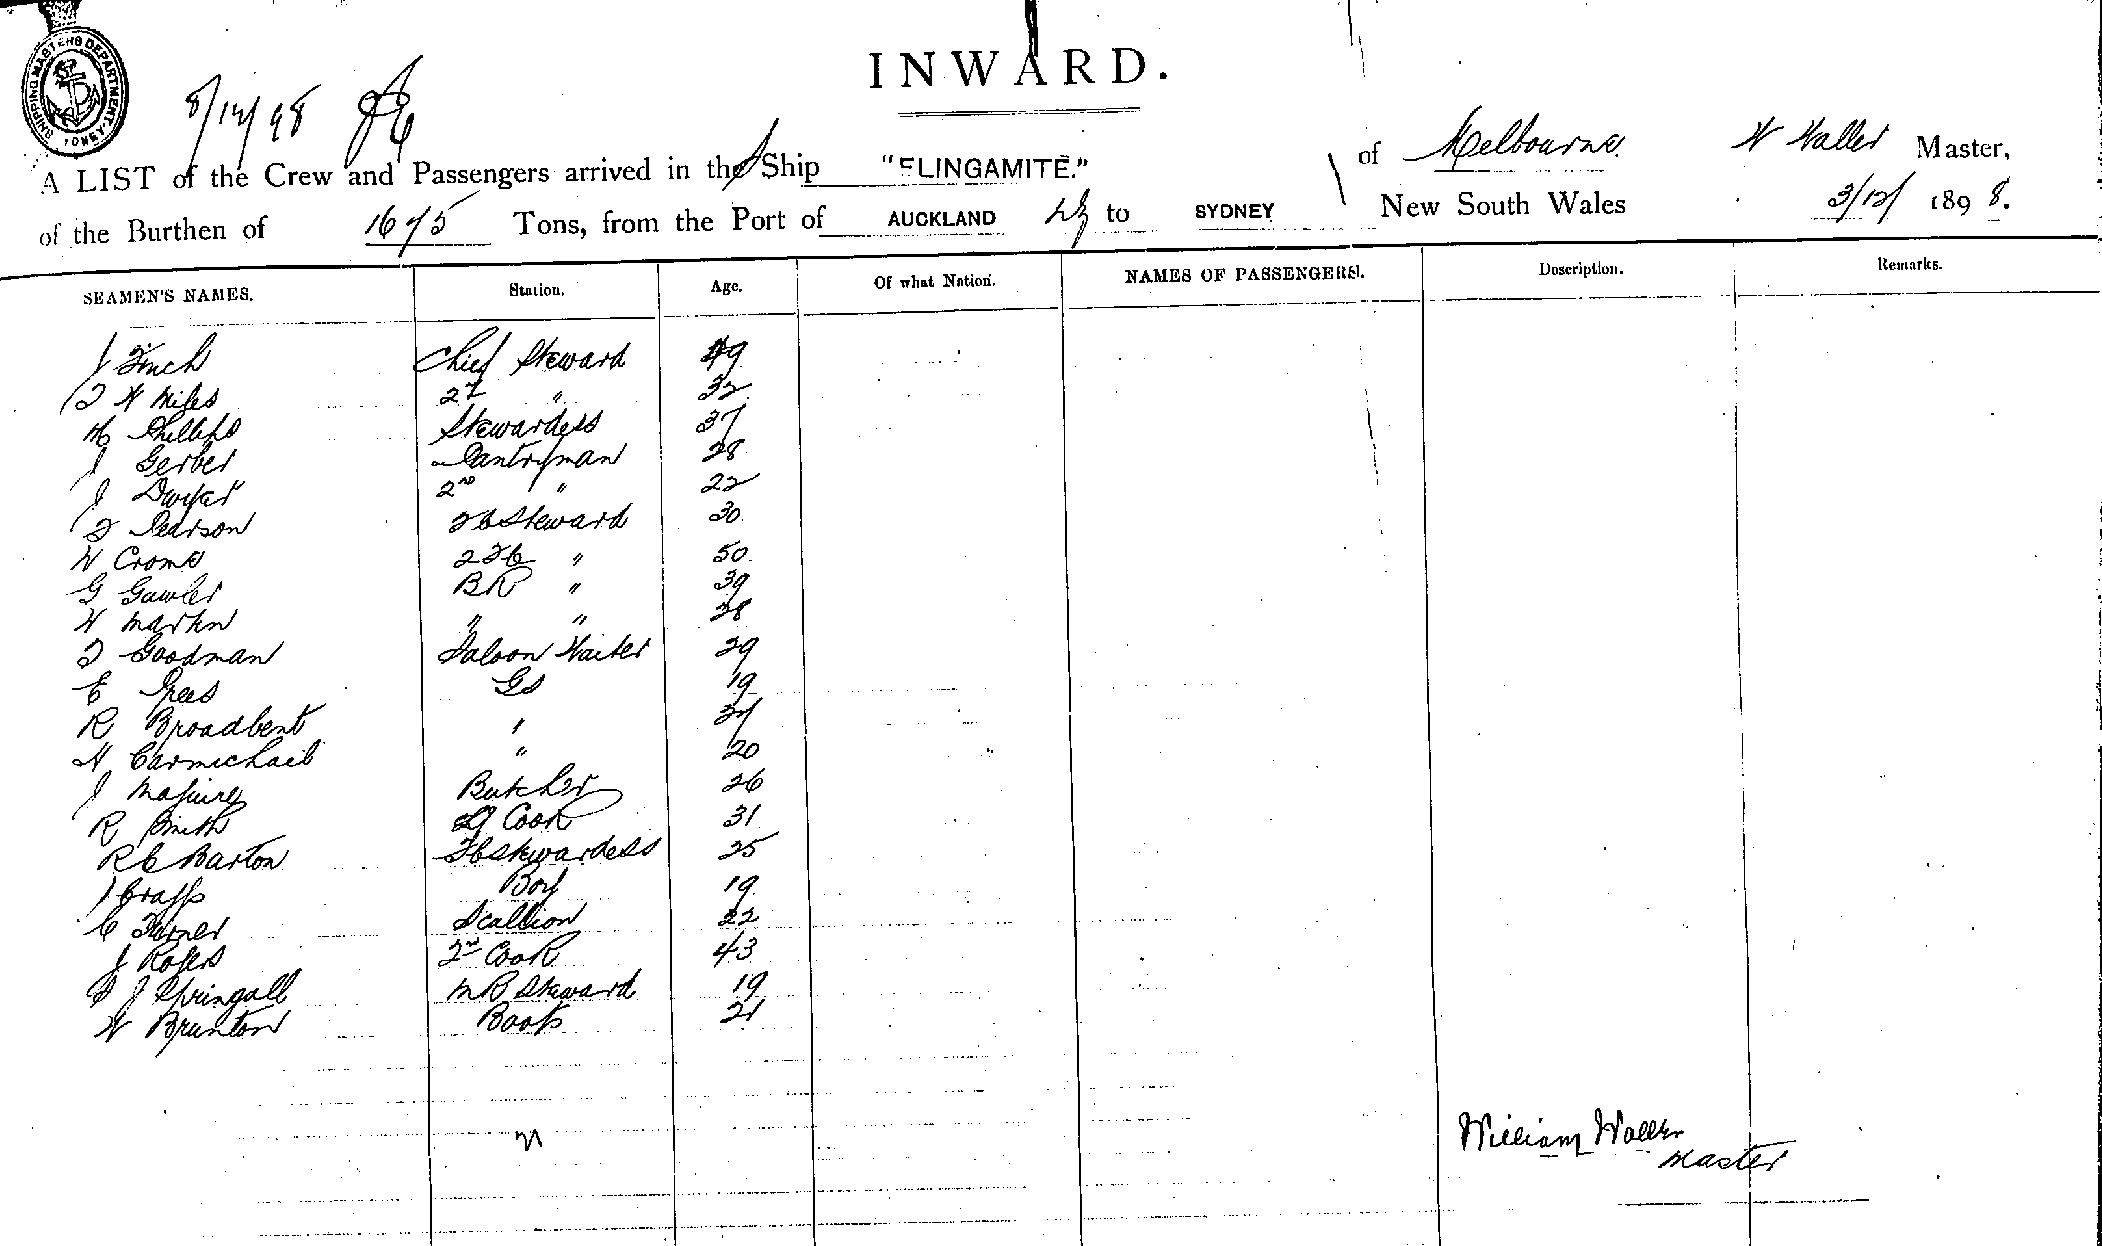 SHIPPING MASTERS DEPARTMENT
INWARD.
8/12/98
A LIST of the Crew and Passengers arrived in the Ship "ELINGAMITE." of Melbourne W Waller Master,
of the Burthen of 1675 Tons, from the Port of AUCKLAND NZ to SYDNEY New South Wales 3/12/ 1898.
SEAMEN'S NAMES. Station. Age. Of what Nation. NAMES OF PASSENGERS. Description. Remarks.
J Finch Chief Steward 49
T W Miles 2d " 32
M Phillips Stewardess 37
J Gerber Pantryman 28
J Dwyer 2nd " 22
F Pearson FC Steward 30
W Croms 2 FC " 50
G Gawler BR " 39
W Martin " " 28
T Goodman Saloon Waiter 29
E Spees Gs 19
R Broadbent "
H Carmichael " 20
J Maguire Butcher 26
R Smith Cook 31
R C Barton FC Stewardess 25
J Boy 19
C Turner Scullion 22
J Rogers 2nd Cook 43
J Springall MR Steward 19
W Brunton Boots 21
William Waller
Master